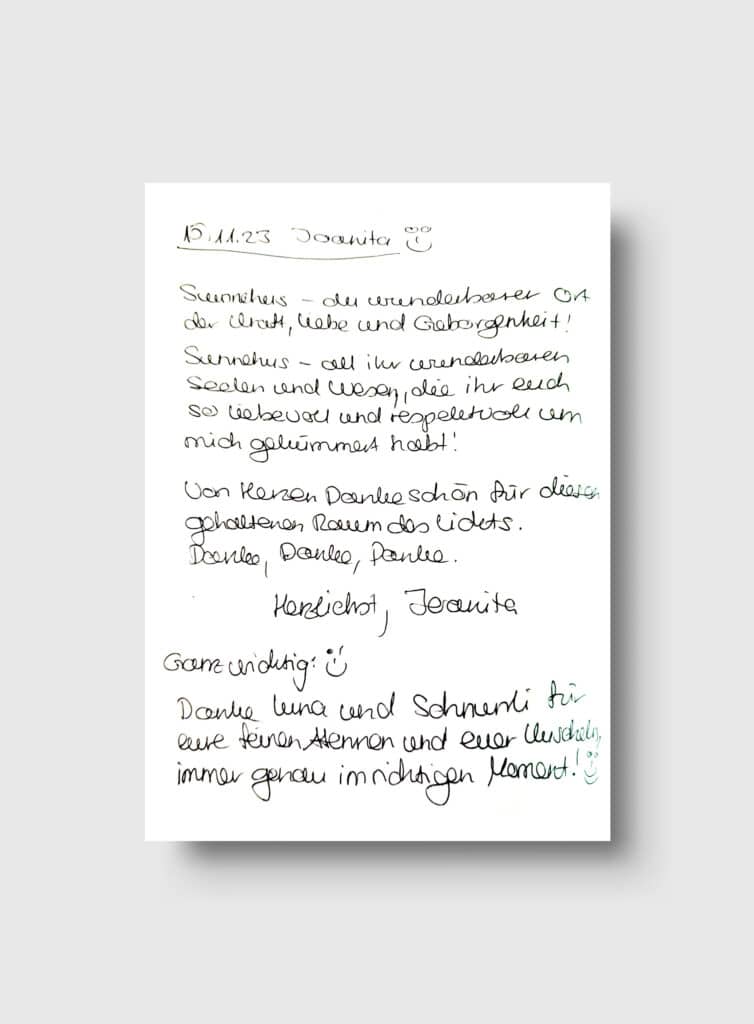 15.11.23 Joanita
Sunnehus – du wunderbarer Ort
der Kraft, Liebe und Geborgenheit!
Sunnehus – all ihr wunderbaren
Seelen und Wesen, die ihr euch
so liebevoll und respektvoll um
mich gekümmert habt!
Von Herzen Dankeschön für diesen
gehaltenen Raum des Lichts.
Danke, Danke, Danke.
Herzlichst, Joanita
Ganz wichtig:
Danke Luna und Schnurrli für
eure feinen Antennen und euer Kuscheln,
immer genau im richtigen Moment!